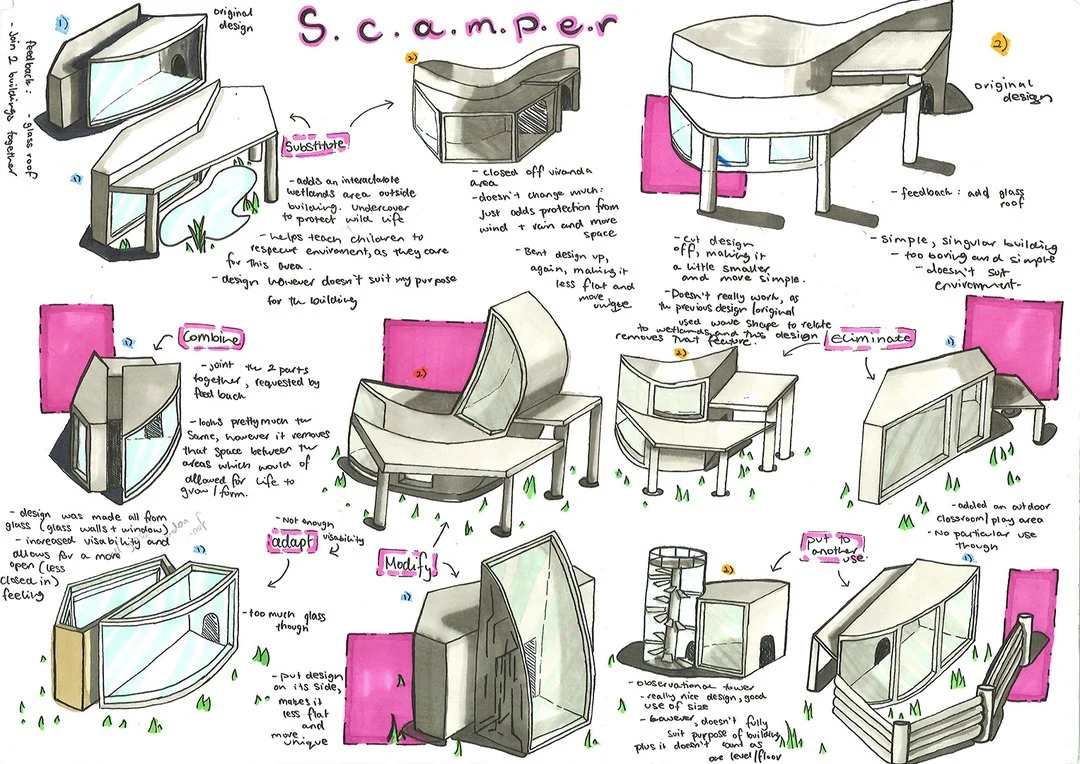 S.c.a.m.p.e.r
1)
original
design
feedback:
- glass roof
- join 2 buildings together
1)
Substitute
- adds an interactable
wetlands area outside
building. Undercover
to protect wild life
- helps teach children to
respecut enviroment, as they care
for this area.
- design however doesn't suit my purpose
for the building
2)
- closed off viranda
area
- doesn't change much:
just adds protection from
wind + rain and more
space
- Bent design up,
again, making it
less flat and
more
unique
2)
original
design
- feedback: add glass
roof
- simple, singular building
- too boring and simple
- doesn't suit
environment-
- cut design
off, making it
a little smaller
and more simple.
- Doesn't really work, as
the previous design/original
used wave shape to relate
to wetlands and this design
removes that feature.
eliminate
2)
1)
- added an outdoor
classroom/play area
- No particular use
though
Combine
1)
- joint the 2 parts
together, requested by
feed back
- looks pretty much the
same, however it removes
that space between the
areas which would of
allowed for life to
grow/form.
2)
- design was made all from
glass (glass walls + window)
- increased visability and
allows for a more
open (less
closed in)
feeling
1)
- Not enough
visability
adapt
- too much glass
though
Modify
1)
- put design
on its side,
makes it
less flat
and
more
unique
put to
another
use.
2)
- observational tower
- really nice design, good
use of size
- however, doesn't fully
suit purpose of building
plus it doesn't count as
one level/floor
1)